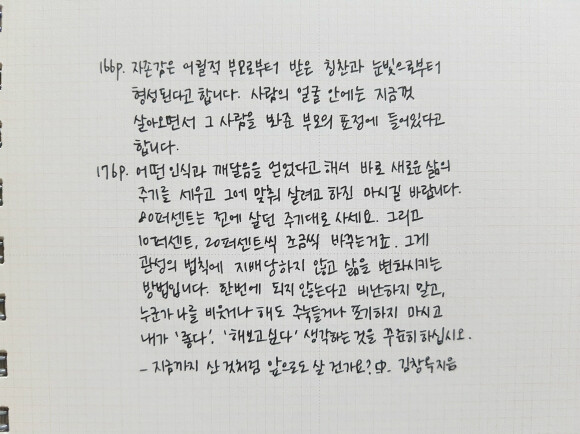 166p. 자존감은 어릴적 부모로부터 받은 칭찬과 눈빛으로부터
형성된다고 합니다. 사람의 얼굴 안에는 지금껏
살아오면서 그 사람을 봐준 부모의 표정에 들어있다고
합니다.
176p. 어떤 인식과 깨달음을 얻었다고 해서 바로 새로운 삶의
주기를 세우고 그에 맞춰 살려고 하진 마시길 바랍니다.
80퍼센트는 전에 살던 주기대로 사세요. 그리고
10퍼센트, 20퍼센트씩 조금씩 바꾸는거죠. 그게
관성의 법칙에 지배당하지 않고 삶을 변화시키는
방법입니다. 한번에 되지 않는다고 비난하지 말고,
누군가 나를 비웃거나 해도 주눅들거나 포기하지 마시고
내가 '좋다', '해보고싶다' 생각하는 것을 꾸준히 하십시오.
- 지금까지 산 것처럼 앞으로도 살 건가요? 中. 김창옥 지음